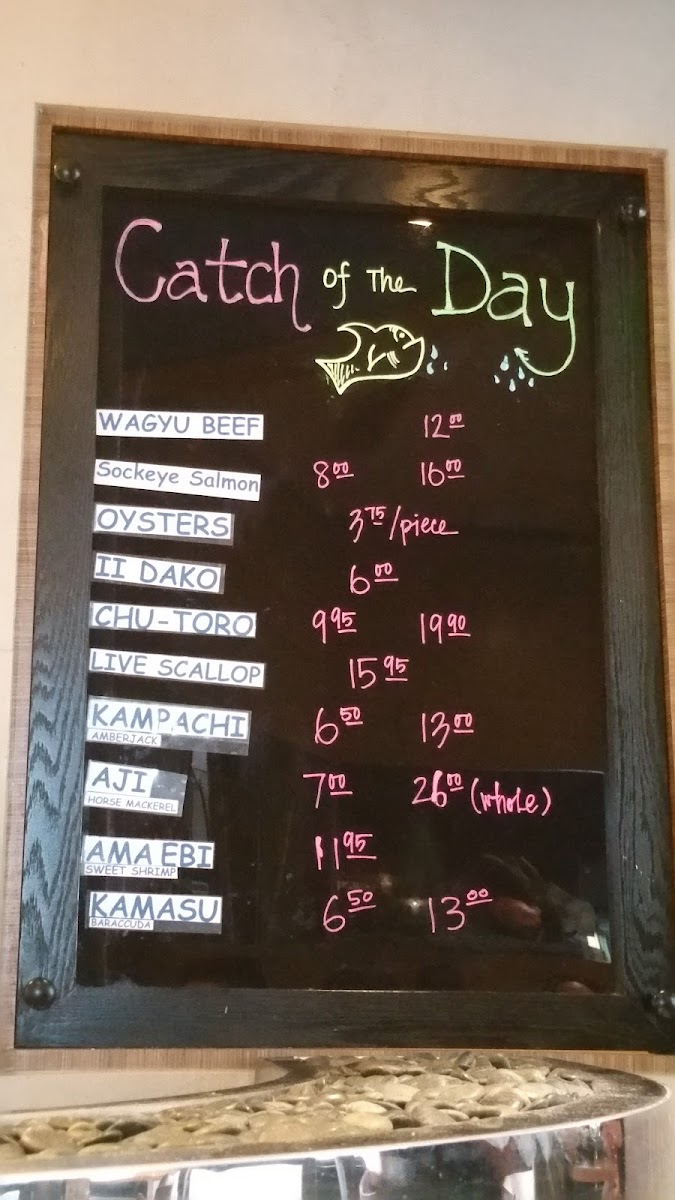 Catch of The Day
WAGYU BEEF 12.00
Sockeye Salmon 8.00 16.00
OYSTERS 3.75/piece
II DAKO 6.00
CHU-TORO 9.95 19.90
LIVE SCALLOP 15.95
KAMPACHI 6.50 13.00
AMBERJACK
AJI 7.00 26.00 (whole)
HORSE MACKEREL
AMA EBI 11.95
SWEET SHRIMP
KAMASU 6.50 13.00
BARACCUDA